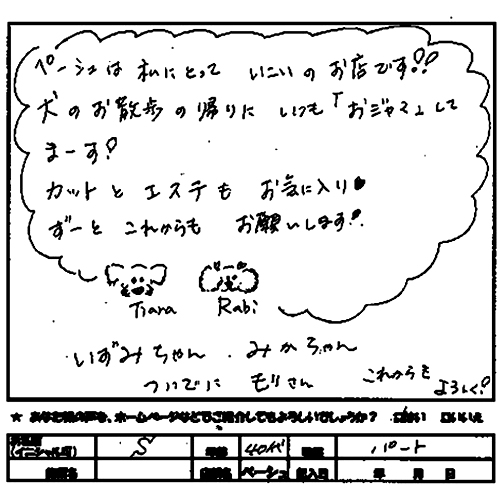 ペーシュは私にとって いこいのお店です!!
犬のお散歩の帰りに いつも「おジャマ」して
まーす!
カットとエステも お気に入り
ずーと これからも お願いします!
Tiara Rabi
いずみちゃん . みかちゃん
ついでに もりさん
これからも
よろしく!
★ あなた様の声を、ホームページなどでご紹介してもよろしいでしょうか? □はい □いいえ
(イニシャル可) S 年齢 40代 職業 パート
店舗名 ペーシュ 記入日 年 月 日